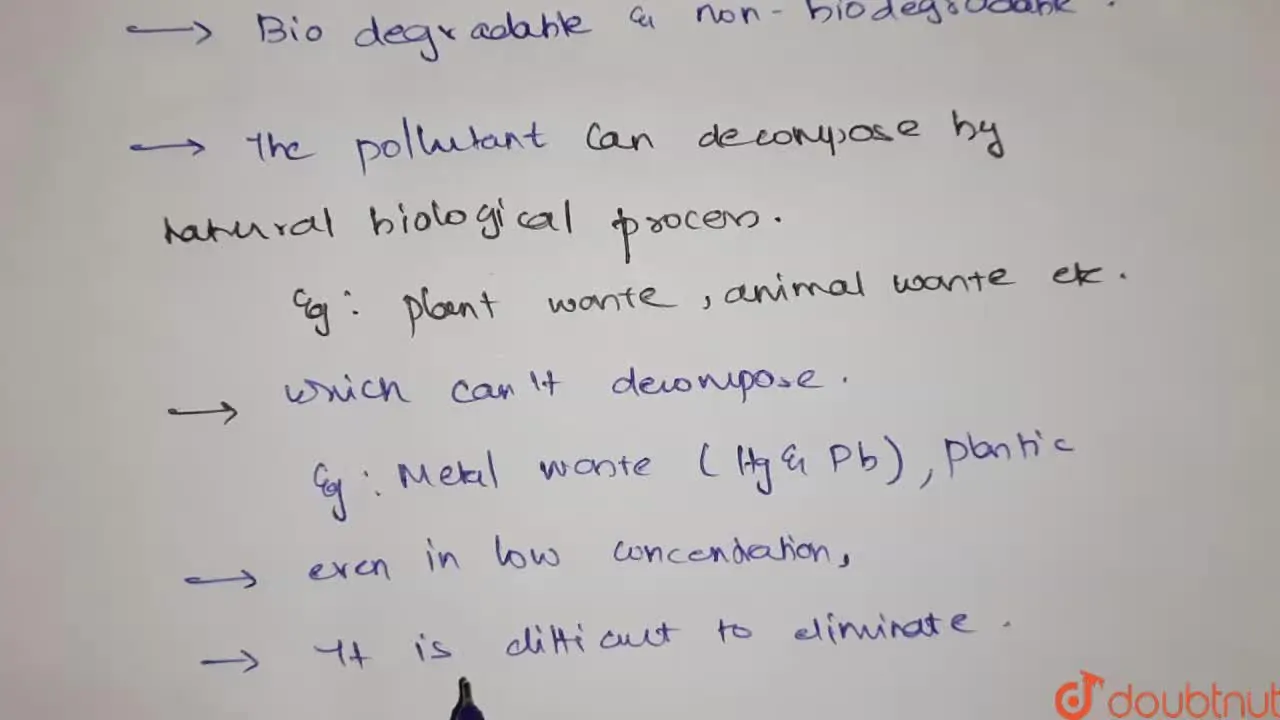 → Bio degradable & non-biodegradable.
→ The pollutant can decompose by
natural biological process.
Eg: plant waste, animal waste etc.
→ which can't decompose.
Eg: Metal waste (Hg & Pb), plastic
→ even in low concentration,
→ It is difficult to eliminate.
doubtnut